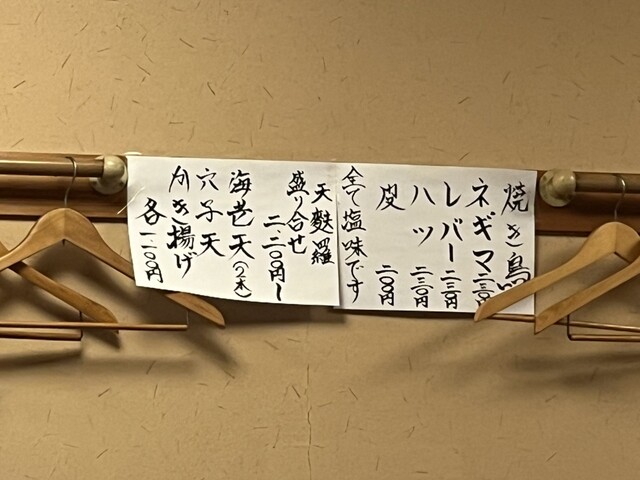 焼き鳥
ネギマ 二三〇円
レバー 二三〇円
ハツ 二三〇円
皮 二〇〇円
全て塩味です
天麩羅
盛り合せ
二、二〇〇円〜
海老天(2本)
穴子天
かき揚げ
各一、一〇〇円